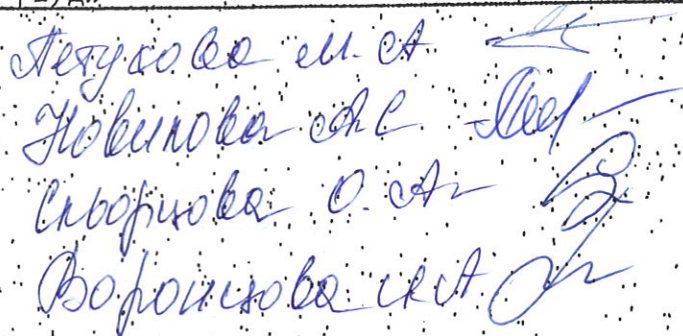 Петухова М.А
Новикова А.С
Скворцова О.А.
Воронцова А.А